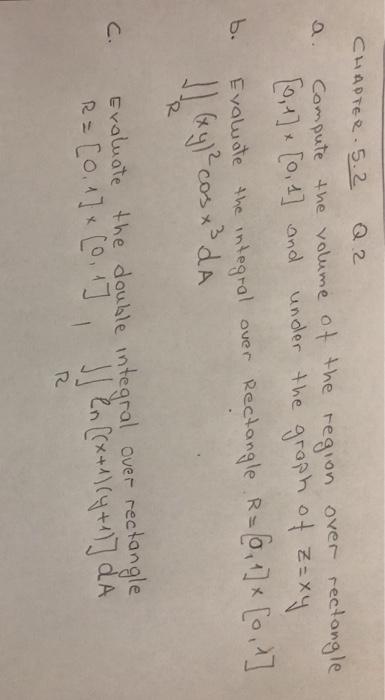 CHAPTER. 5.2 Q.2
a. Compute the volume of the region over rectangle
[0,1] x [0,1] and under the graph of z=xy
b. Evaluate the integral over Rectangle. R=[0,1] x [0,1]
∬R (xy)² cos x³ dA
c. Evaluate the double integral over rectangle
R=[0,1] x [0,1] , ∬R ln[(x+1)(y+1)] dA